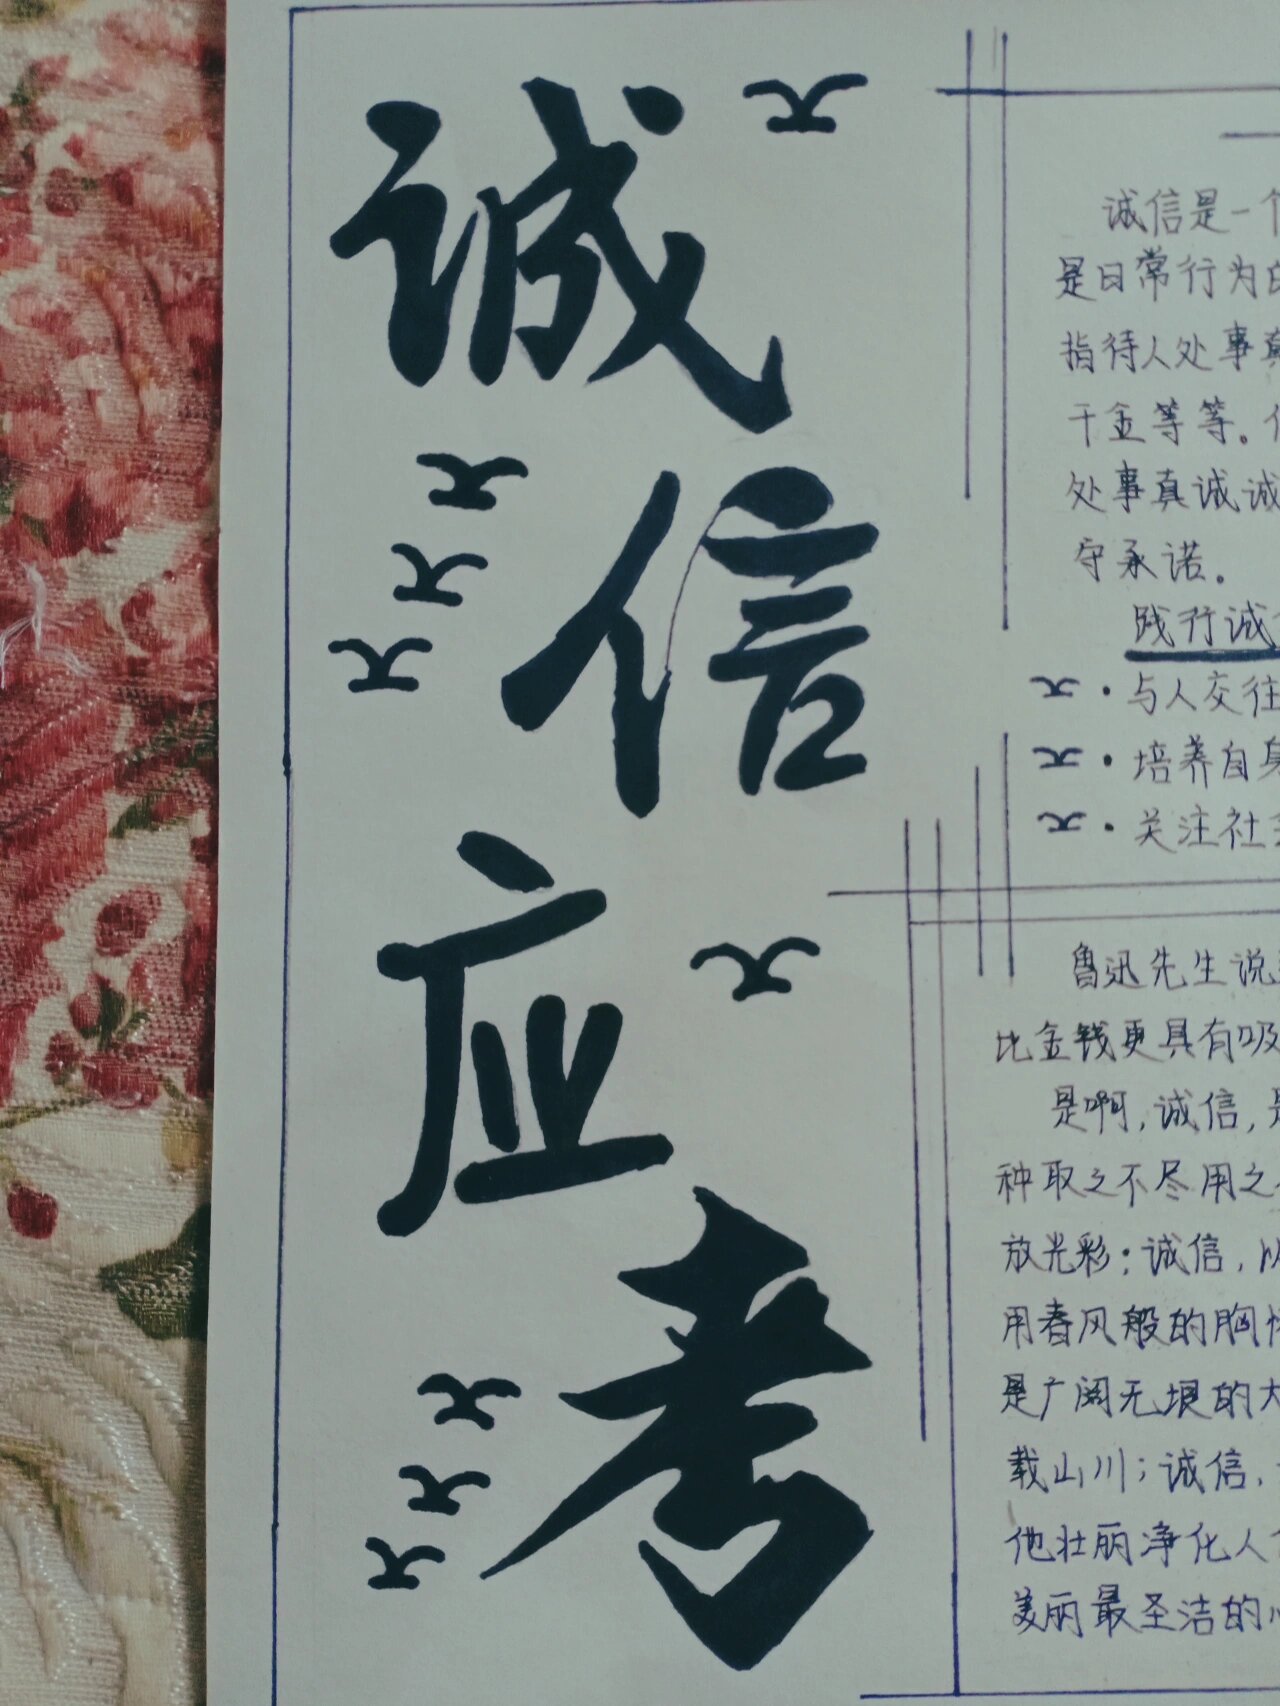 诚信应考
诚信是一个
是日常行为的
指待人处事真
千金等等。
处事真诚诚
守承诺。
践行诚
·与人交往
·培养自身
·关注社会
鲁迅先生说
比金钱更具有吸
是啊,诚信,是
种取之不尽用之
放光彩;诚信,以
用春风般的胸怀
是广阔无垠的大
载山川;诚信,
他壮丽净化人
美丽最圣洁的心